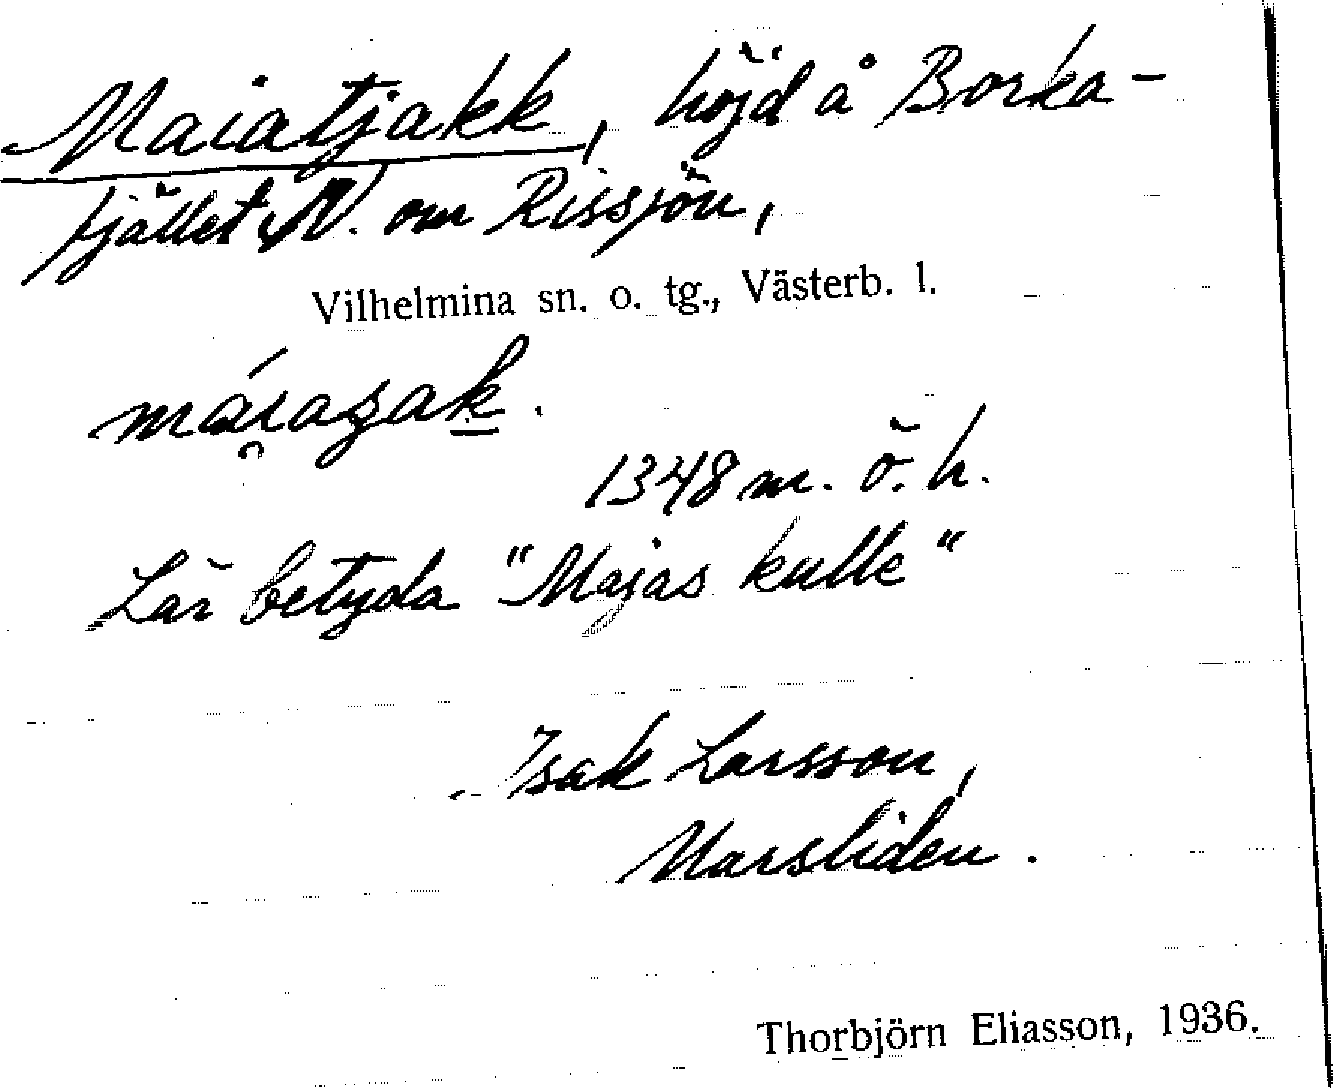 Maiatjakk, höjd å Borka-
fjället N. om Rissjön,
Vilhelmina sn. o. tg., Västerb. l.
1348 m. ö. h.
Lär betyda "Majas kulle"
Isak Larsson,
Marsliden.
Thorbjörn Eliasson, 1936.